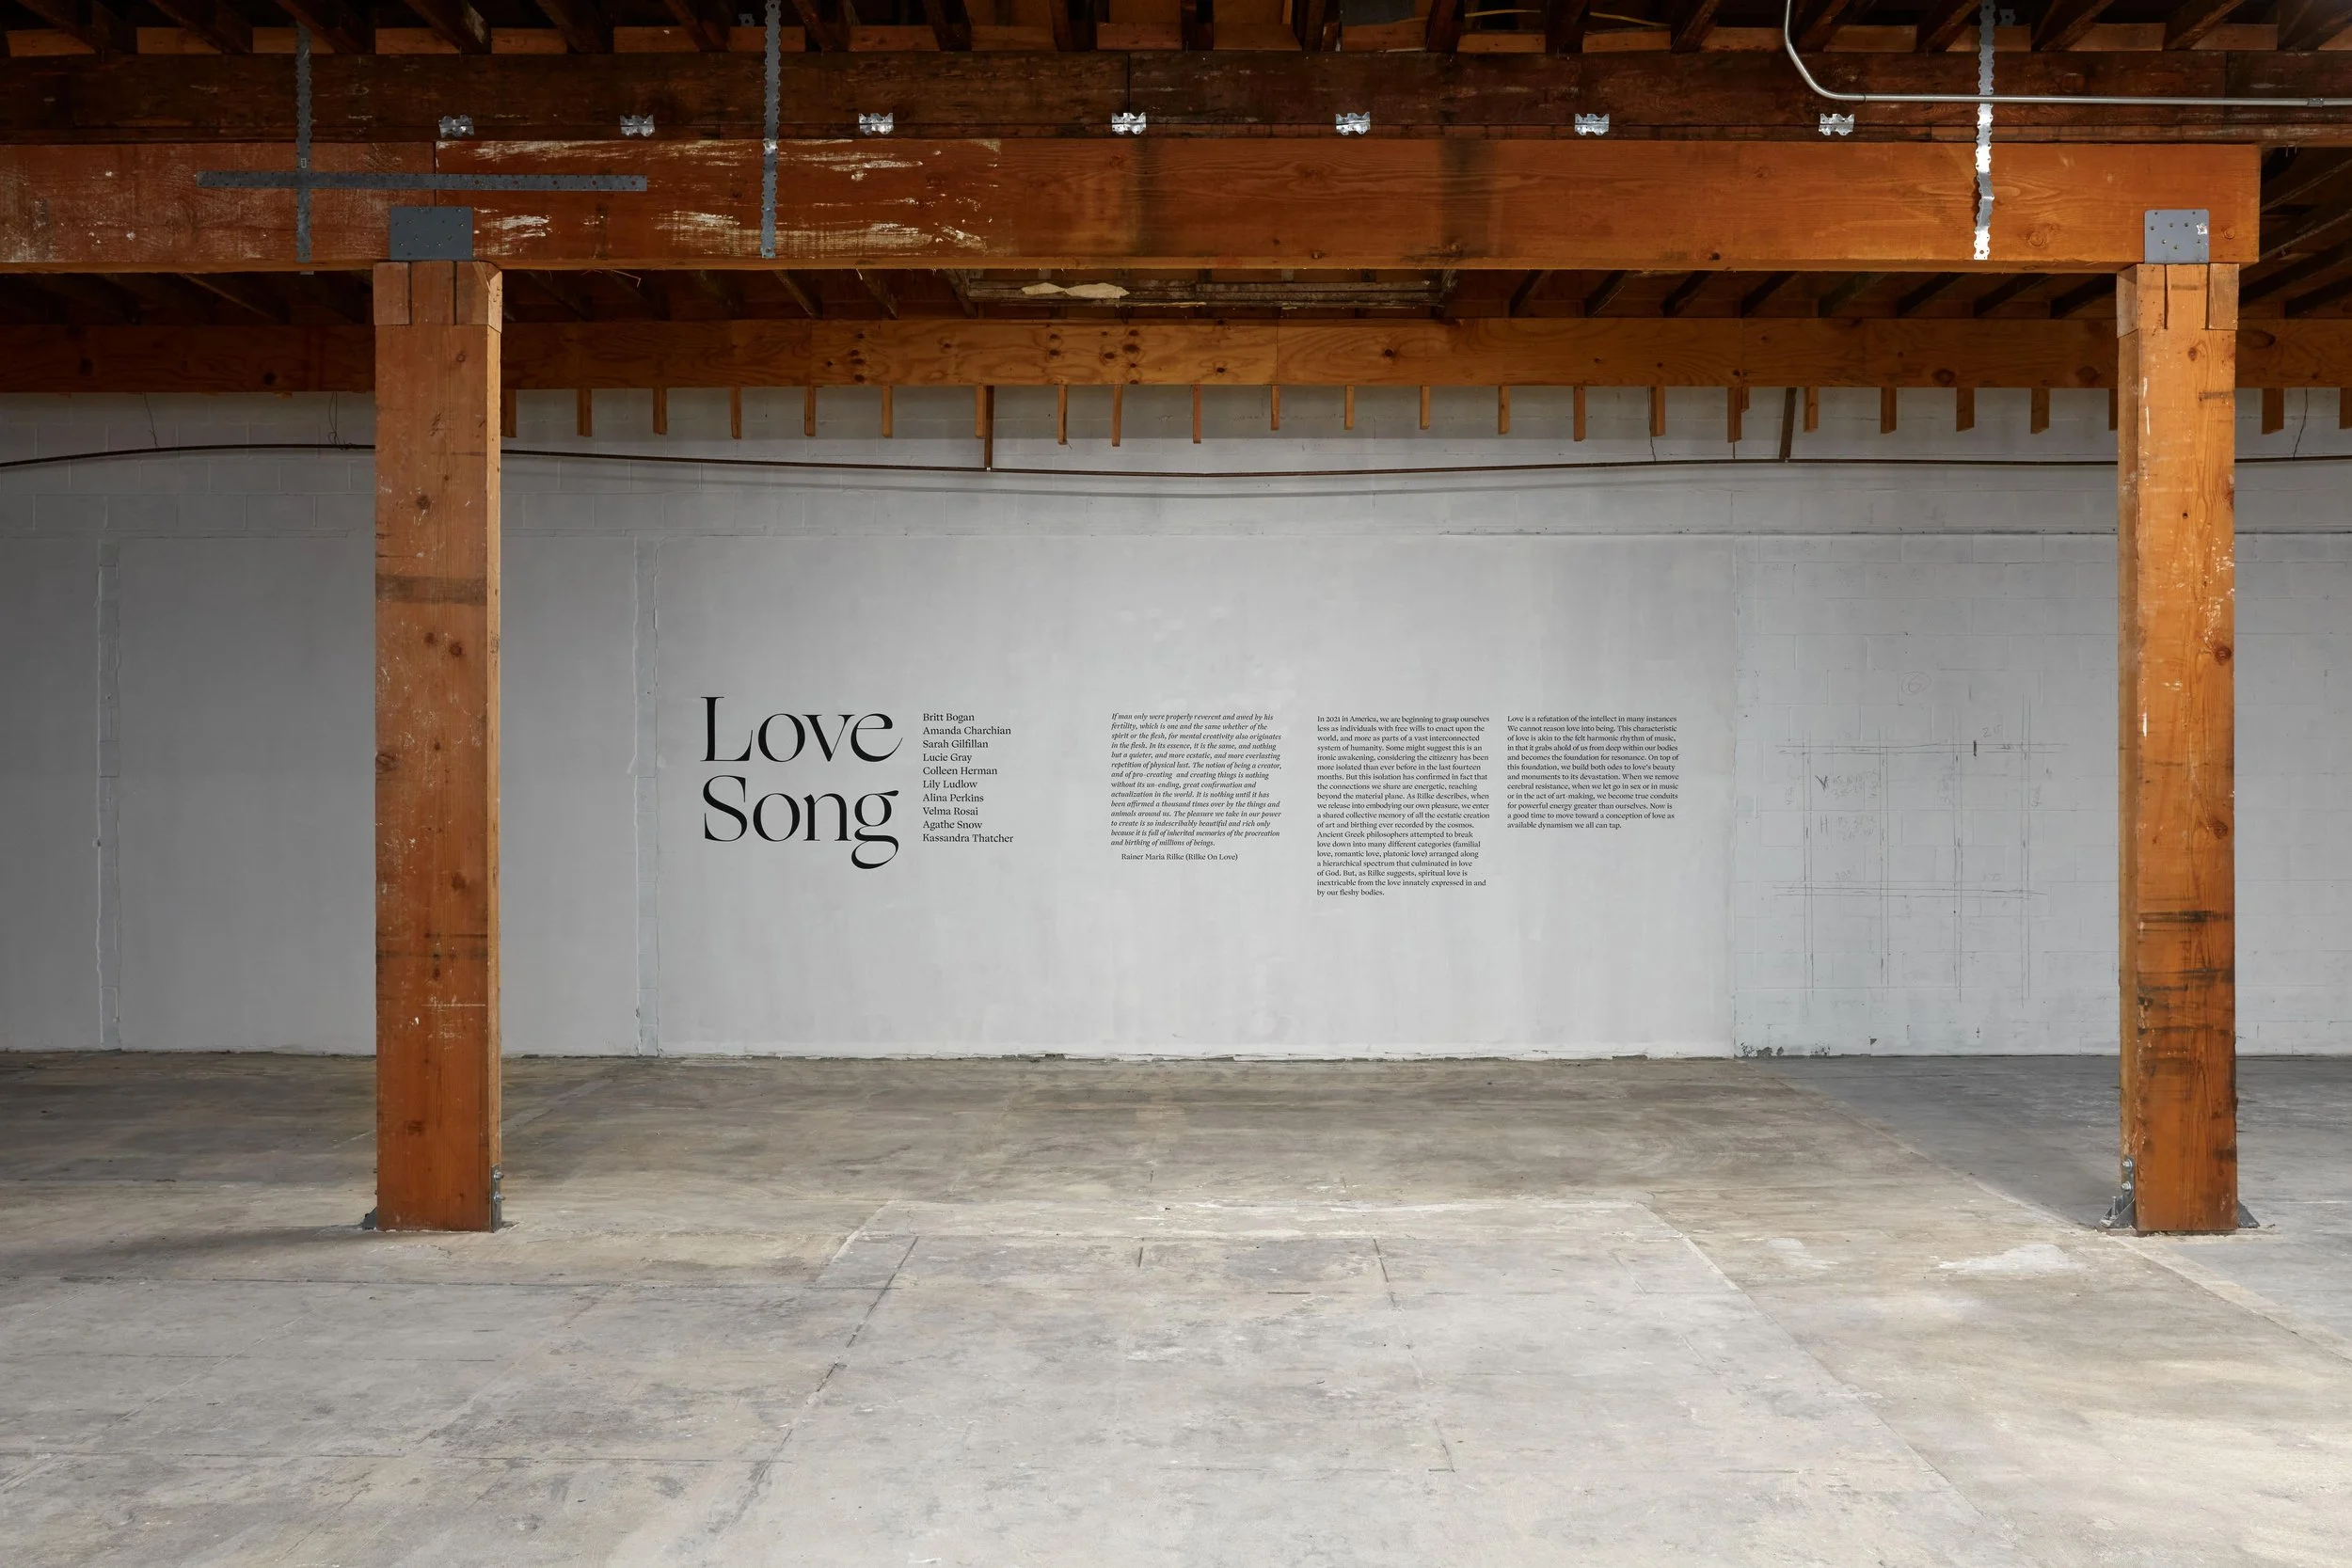 Love
Song
Britt Bogan
Amanda Charchian
Sarah Gilfillan
Lucie Gray
Colleen Herman
Lily Ludlow
Alina Perkins
Velma Rosai
Agathe Snow
Kassandra Thatcher
If man only were properly reverent and awed by his
fertility, which is one and the same whether of the
spirit or the flesh, for mental creativity also originates
in the flesh. In its essence, it is the same, and nothing
but a quieter, and more ecstatic, and more everlasting
repetition of physical lust. The notion of being a creator,
and of pro-creating and creating things is nothing
without its un-ending, great confirmation and
actualization in the world. It is nothing until it has
been affirmed a thousand times over by the things and
animals around us. The pleasure we take in our power
to create is so indescribably beautiful and rich only
because it is full of inherited memories of the procreation
and birthing of millions of beings.
Rainer Maria Rilke (Rilke On Love)
In 2021 in America, we are beginning to grasp ourselves
less as individuals with free wills to enact upon the
world, and more as parts of a vast interconnected
system of humanity. Some might suggest this is an
ironic awakening, considering the citizenry has been
more isolated than ever before in the last fourteen
months. But this isolation has confirmed in fact that
the connections we share are energetic, reaching
beyond the material plane. As Rilke describes, when
we release into embodying our own pleasure, we enter
a shared collective memory of all the ecstatic creation
of art and birthing ever recorded by the cosmos.
Ancient Greek philosophers attempted to break
love down into many different categories (familial
love, romantic love, platonic love) arranged along
a hierarchical spectrum that culminated in love
of God. But, as Rilke suggests, spiritual love is
inextricable from the love innately expressed in and
by our fleshy bodies.
Love is a refutation of the intellect in many instances
We cannot reason love into being. This characteristic
of love is akin to the felt harmonic rhythm of music,
in that it grabs ahold of us from deep within our bodies
and becomes the foundation for resonance. On top of
this foundation, we build both odes to love's beauty
and monuments to its devastation. When we remove
cerebral resistance, when we let go in sex or in music
or in the act of art-making, we become true conduits
for powerful energy greater than ourselves. Now is
a good time to move toward a conception of love as
available dynamism we all can tap.
6